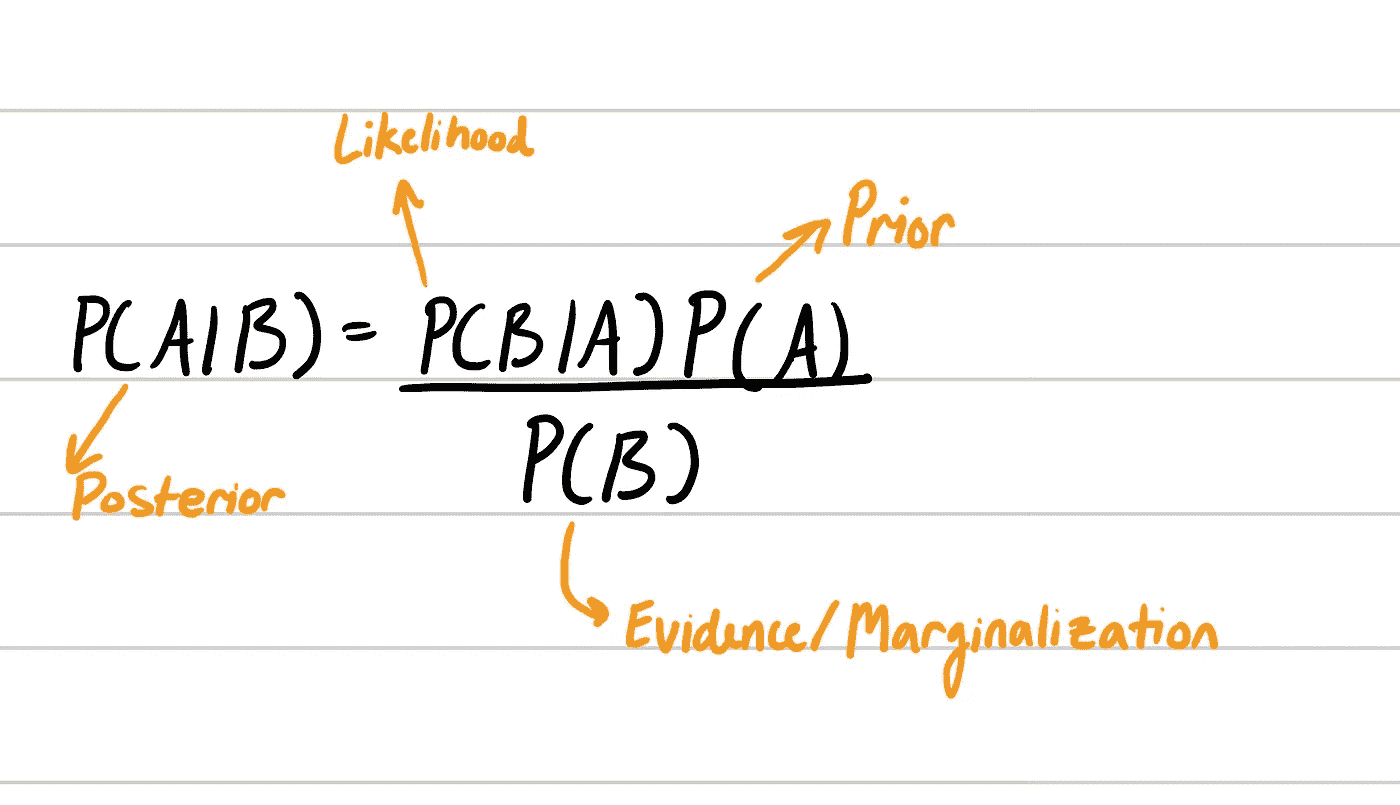 Likelihood
Prior
P(A|B) = P(B|A) P(A)
P(B)
Posterior
Evidence/Marginalization